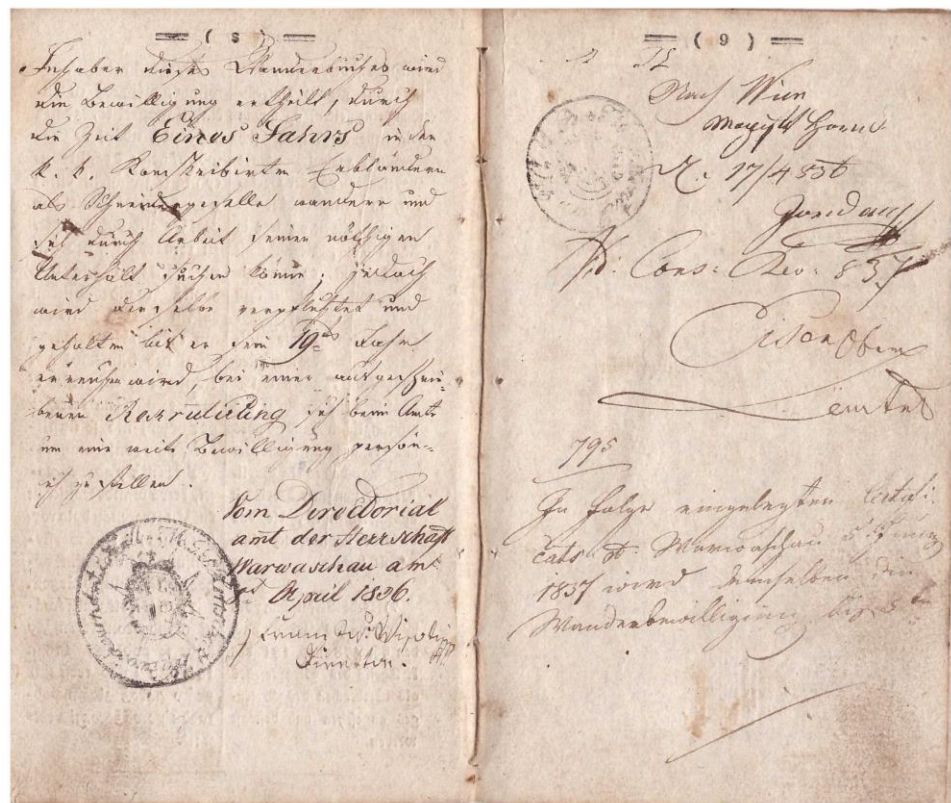 ( 8 )
Inhaber dieses Wanderbuches wird
die Bewilligung ertheilt, durch
die Zeit Eines Jahrs in den
k. k. Konskribirten Erbländern
als Schneidergeselle wandern und
sich durch Arbeit seinen nöthigen
Unterhalt suchen könne; jedoch
wird derselbe verpflichtet und
gehalten bis er sein 19tes Jahr
erreichen wird, bei einer ausgeschrie-
benen Rekrutirung sich beim Amte
um eine weite Bewilligung persön-
ich zu stellen.
Vom Directorial
amt der Herrschaft
Warwaschau am
April 1836.
Director.
( 9 )
Nach Wien
Horn
17/4 836
Cons: Rev: 837
795
In Folge eingelegten Certifi-
cats Warwaschau 5
1837 wird demselben die
Wanderbewilligung bis